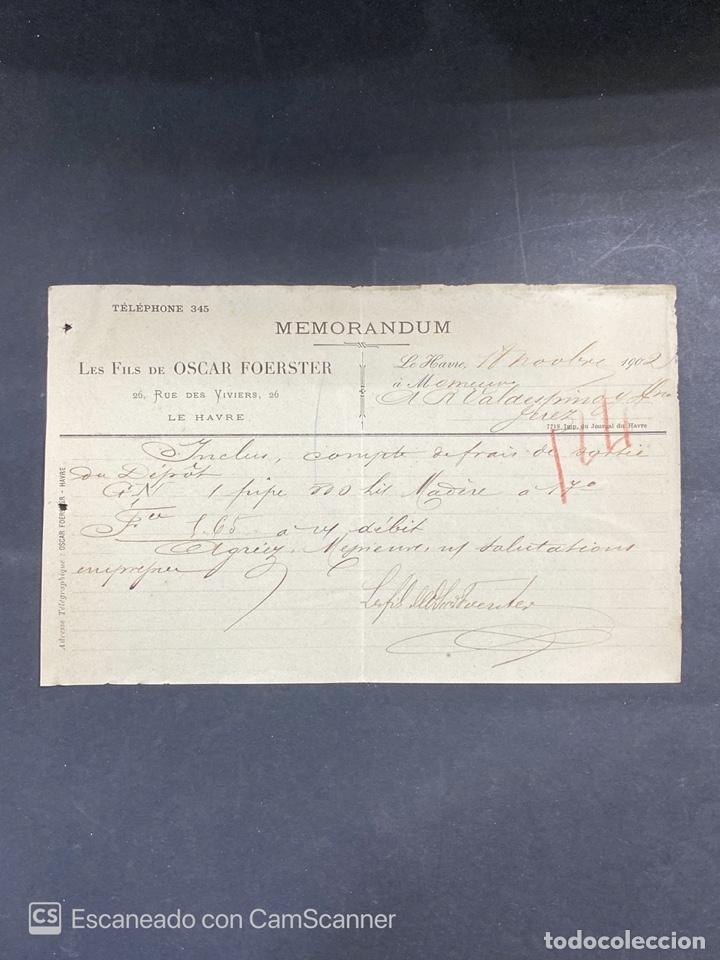 TÉLÉPHONE 345
MEMORANDUM
LES FILS DE OSCAR FOERSTER
26, RUE DES VIVIERS, 26
LE HAVRE
Le Havre, 18 novbre 1902
à Messieurs
A R Valdespino y Hno
Jerez
7718. Imp. du Journal du Havre
Adresse Télégraphique : OSCAR FOERSTER - HAVRE
Inclus, compte de frais de sortie
du Dépôt
1 pipe 500 lit Madère à 17°
à débit
Agréez, Messieurs, salutations
empressées
Les fils de Oscar Foerster
CS Escaneado con CamScanner
todocoleccion
todocoleccion.net